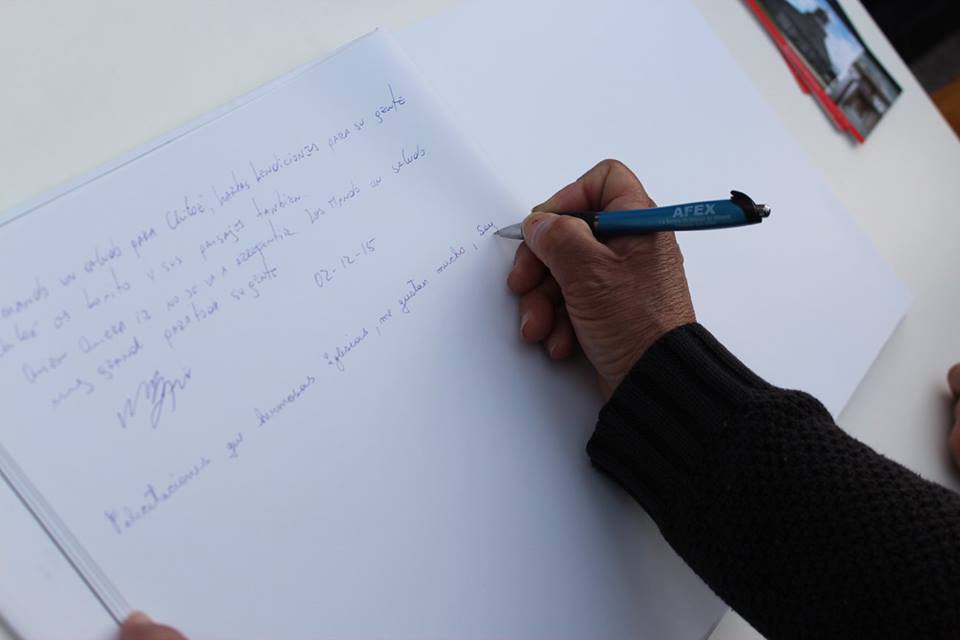 mando un saludo para Chiloé, hartas bendiciones para su gente
Chiloé es bonito y sus paisajes tambien
Quien Quiera ir no se va a arrepentir les Mando un saludo
muy grand para toda su gente
02-12-15
Felicitaciones que hermosas Iglesias, me gustan mucho, Soy
AFEX